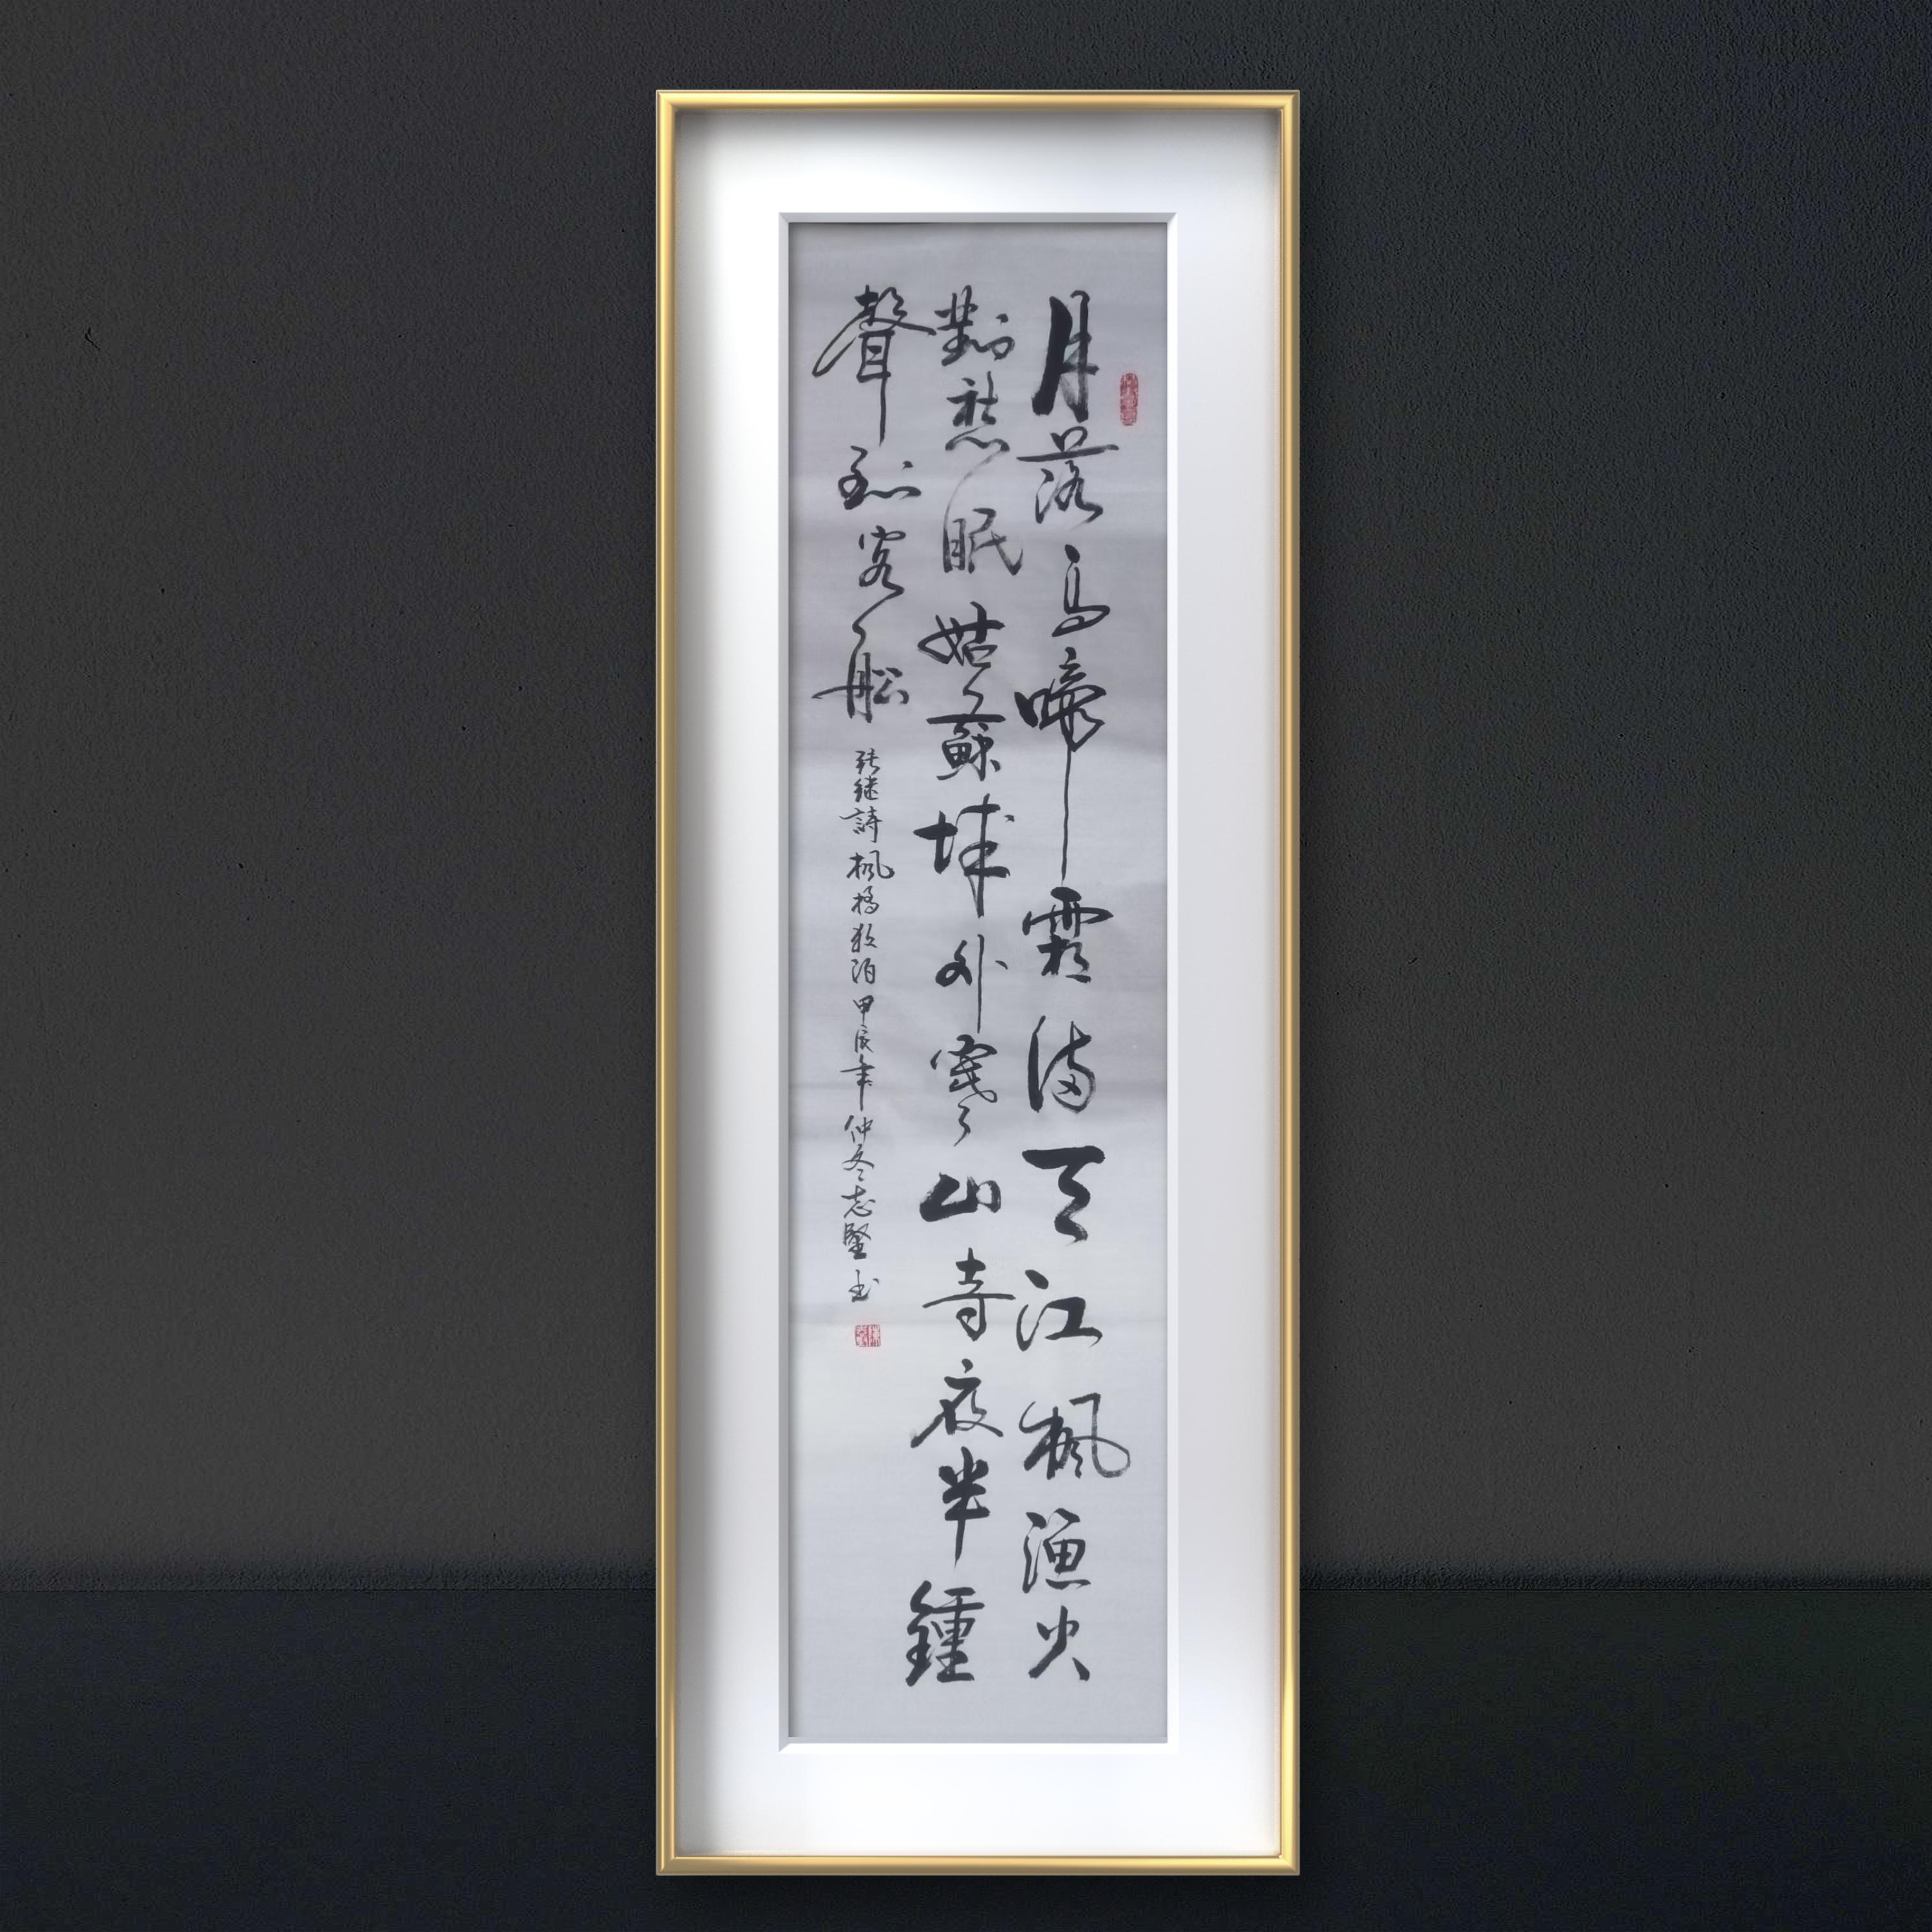 月落烏啼霜满天江楓漁火
對愁眠姑蘇城外寒山寺夜半鍾
聲到客船
张继詩楓橋夜泊甲辰年仲冬志堅书